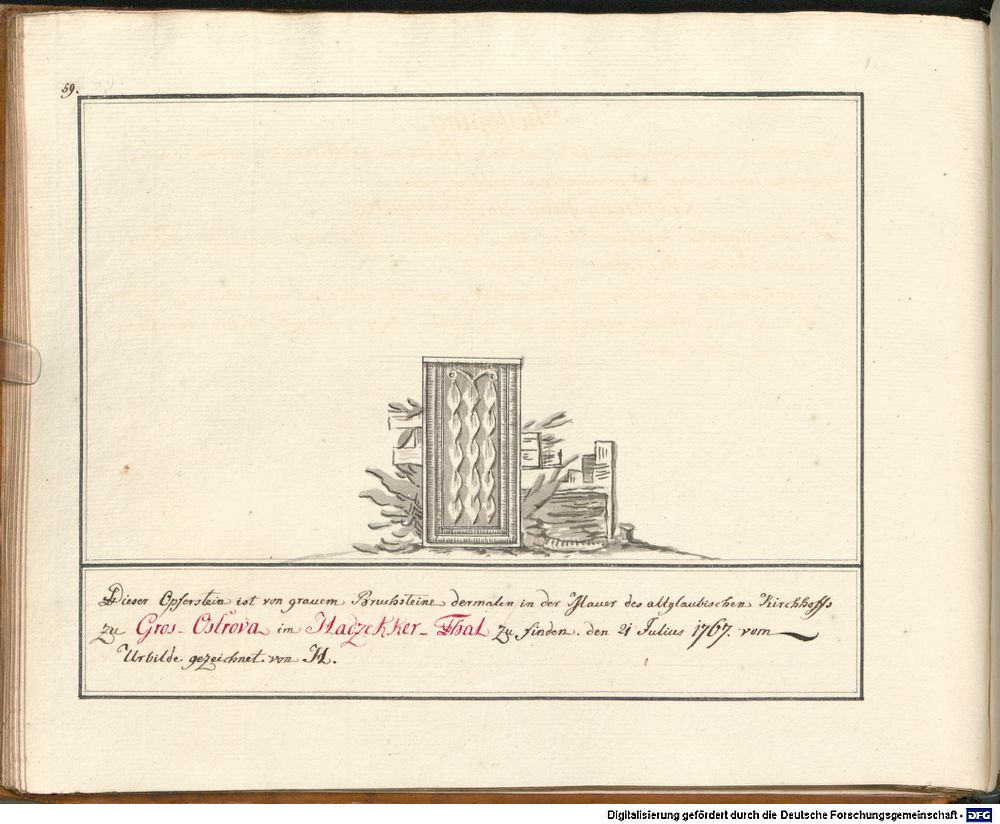 59.
Dieser Opferstein ist von grauem Bruchsteine dermalen in der Mauer des altglaubischen Kirchhoffs
zu Gros-Ostrova im Hadzekker-Thal zu finden. den 21 Julius 1767. vom
Urbilde gezeichnet von H.
Digitalisierung gefördert durch die Deutsche Forschungsgemeinschaft - DFG